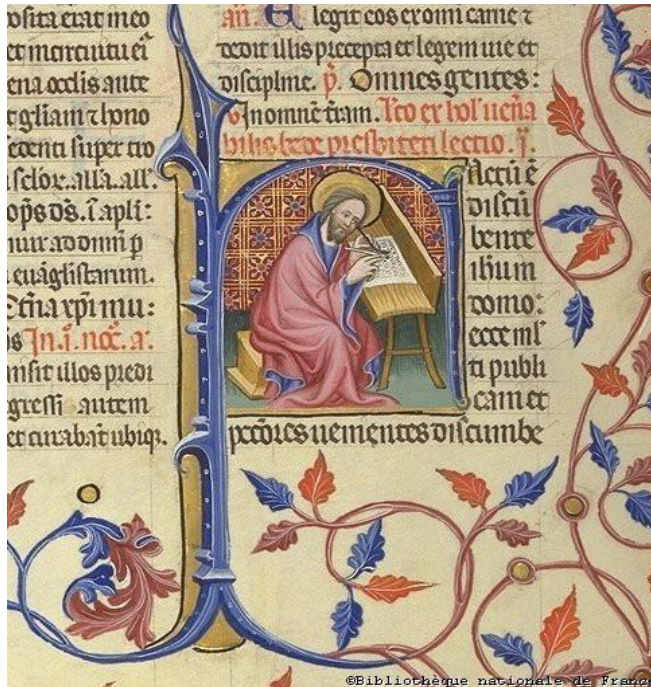 osita erat meo
et in circuitu ei
ena oclis ante
t gliam ⁊ hono
sedenti super tro
i sclor. alla. all.
ops ds. i apli:
nuir ad omni p
a euāglistarum.
Octīa xpi mu:
ps In. i. noc. a.
ansit illos predi
gressi autem
et curabāt ubiqꝫ.
an. Elegit eos ex omi carne ⁊
dedit illis precepta et legem uite et
discipline. p. Omnes gentes:
v In omnē tram. Lco ex
bilis bede presbiteri lectio. i.
Factū ē
discū
bente
ihum
domo:
ecce ml
ti publi
cani et
peccōres uementes discumbe
©Bibliothèque nationale de France